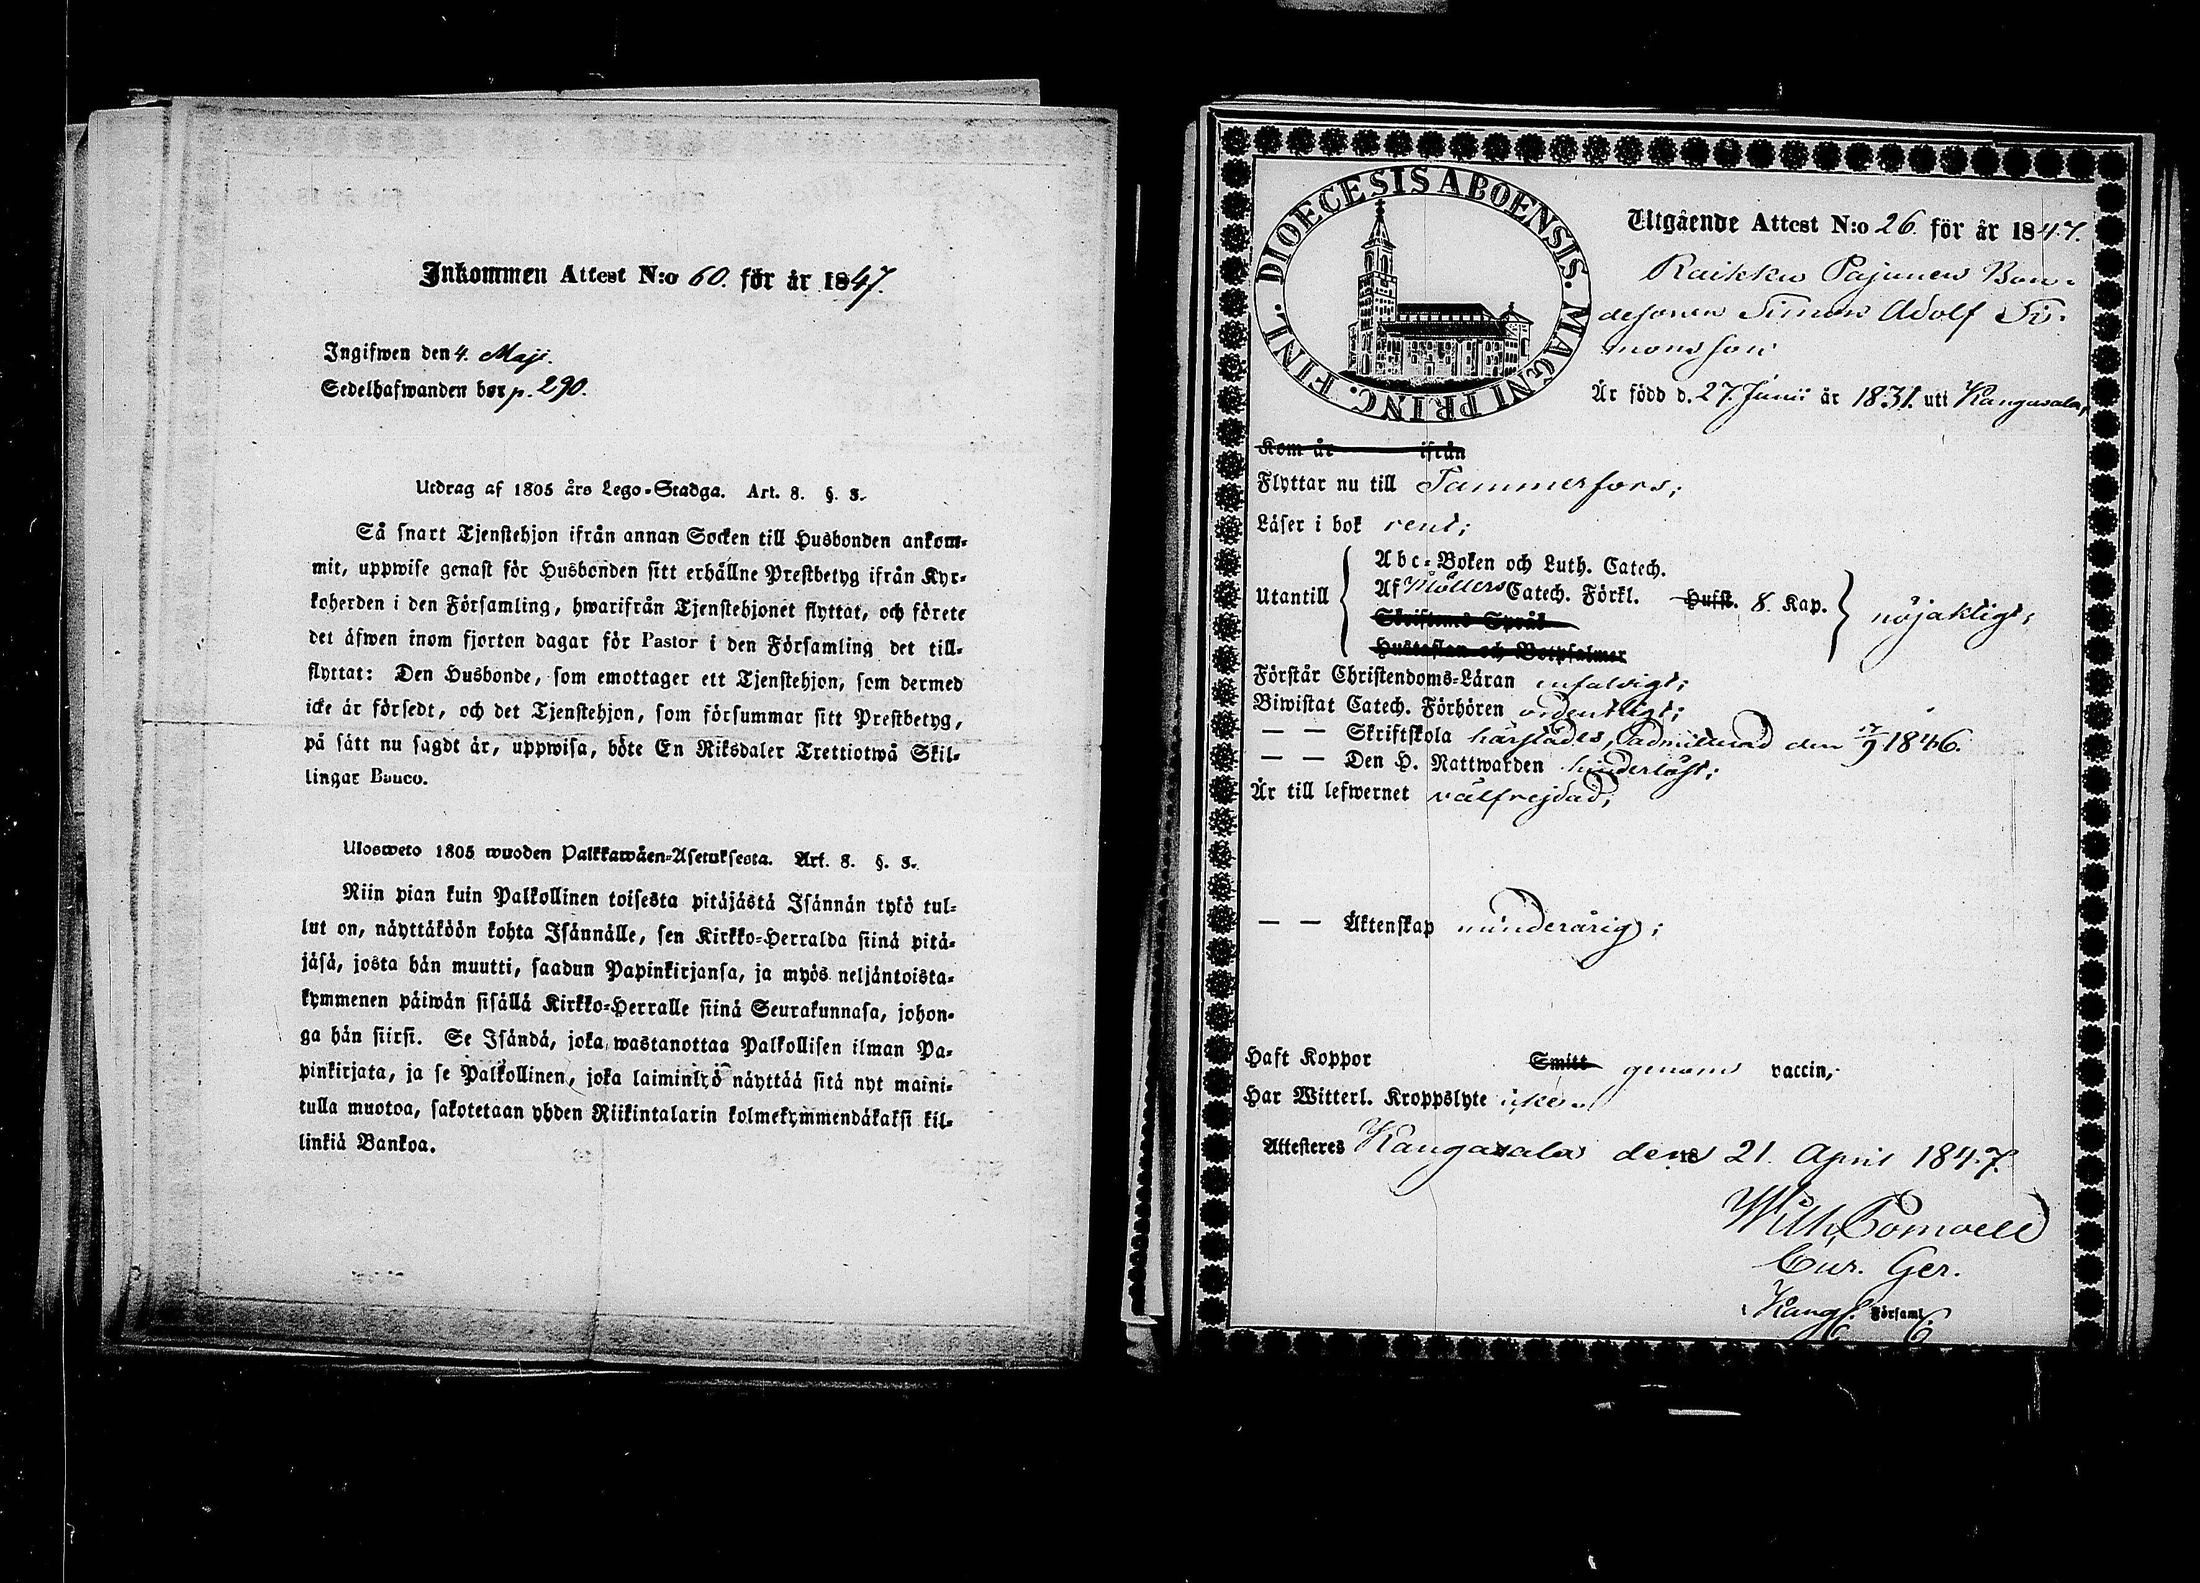 Inkommen Attest N:o 60. för år 1847.
Ingifwen den 4. Maji.
Sedelhafwanden bor p. 290.
Utdrag af 1805 års Lego-Stadga. Art. 8. §. 3.
Så snart Tjenstehjon ifrån annan Socken till Husbonden ankom-
mit, uppwise genast för Husbonden sitt erhållne Prestbetyg ifrån Kyr-
koherden i den Församling, hwarifrån Tjenstehjonet flyttat, och förete
det äfwen inom fjorton dagar för Pastor i den Församling det till-
flyttat: Den Husbonde, som emottager ett Tjenstehjon, som dermed
icke är försedt, och det Tjenstehjon, som försummar sitt Prestbetyg,
på sätt nu sagdt är, uppwisa, böte En Riksdaler Trettiotwå Skil-
lingar Banco.
Ulosweto 1805 wuoden Palkkawäen-Asetuksesta. Art. 8. §. 3.
Niin pian kuin Palkollinen toisesta pitäjästä Isännän tykö tul-
lut on, näyttäköön kohta Isännälle, sen Kirkko-Herralda siinä pitä-
jäsä, josta hän muutti, saadun Papinkirjansa, ja myös neljäntoista-
kymmenen päiwän sisällä Kirkko-Herralle siinä Seurakunnasa, johon-
ga hän siirsi. Se Isändä, joka wastanottaa Palkollisen ilman Pa-
pinkirjata, ja se Palkollinen, joka laiminlyö näyttää sitä nyt maini-
tulla muotoa, sakotetaan yhden Riikintalarin kolmekymmendäkaksi kil-
linkiä Bankoa.
DIOECESIS ABOENSIS. MAGNI PRINC. FINL.
Utgående Attest N:o 26. för år 1847.
Raikku Pajunen Bon-
desonen Simon Adolf Si-
monsson
Är född d. 27. Junii år 1831. uti Kangasala,
Kom år ifrån
Flyttar nu till Tammerfors;
Läser i bok rent;
Utantill
Abc-Boken och Luth. Catech.
Af Möllers Catech. Förkl. Hufst. 8. Kap.
Skriftenes Språk
Hustaflan och Botpsalmer
nöjaktigt;
Förstår Christendoms-Läran enfaldigt;
Biwistat Catech. Förhören ordentligt;
— — Skriftskola härstädes, admitterad den 1846.
— — Den H. Nattwarden hinderlöst;
Är till lefwernet välfrejdad;
— — Äktenskap minderårig;
Haft Koppor Smitt genom vaccin,
Har Witterl. Kroppslyte icke.
Attesteres Kangasala den 21. April 1847.
Wilh.
Cur. Ger.
i Kang. Församl.